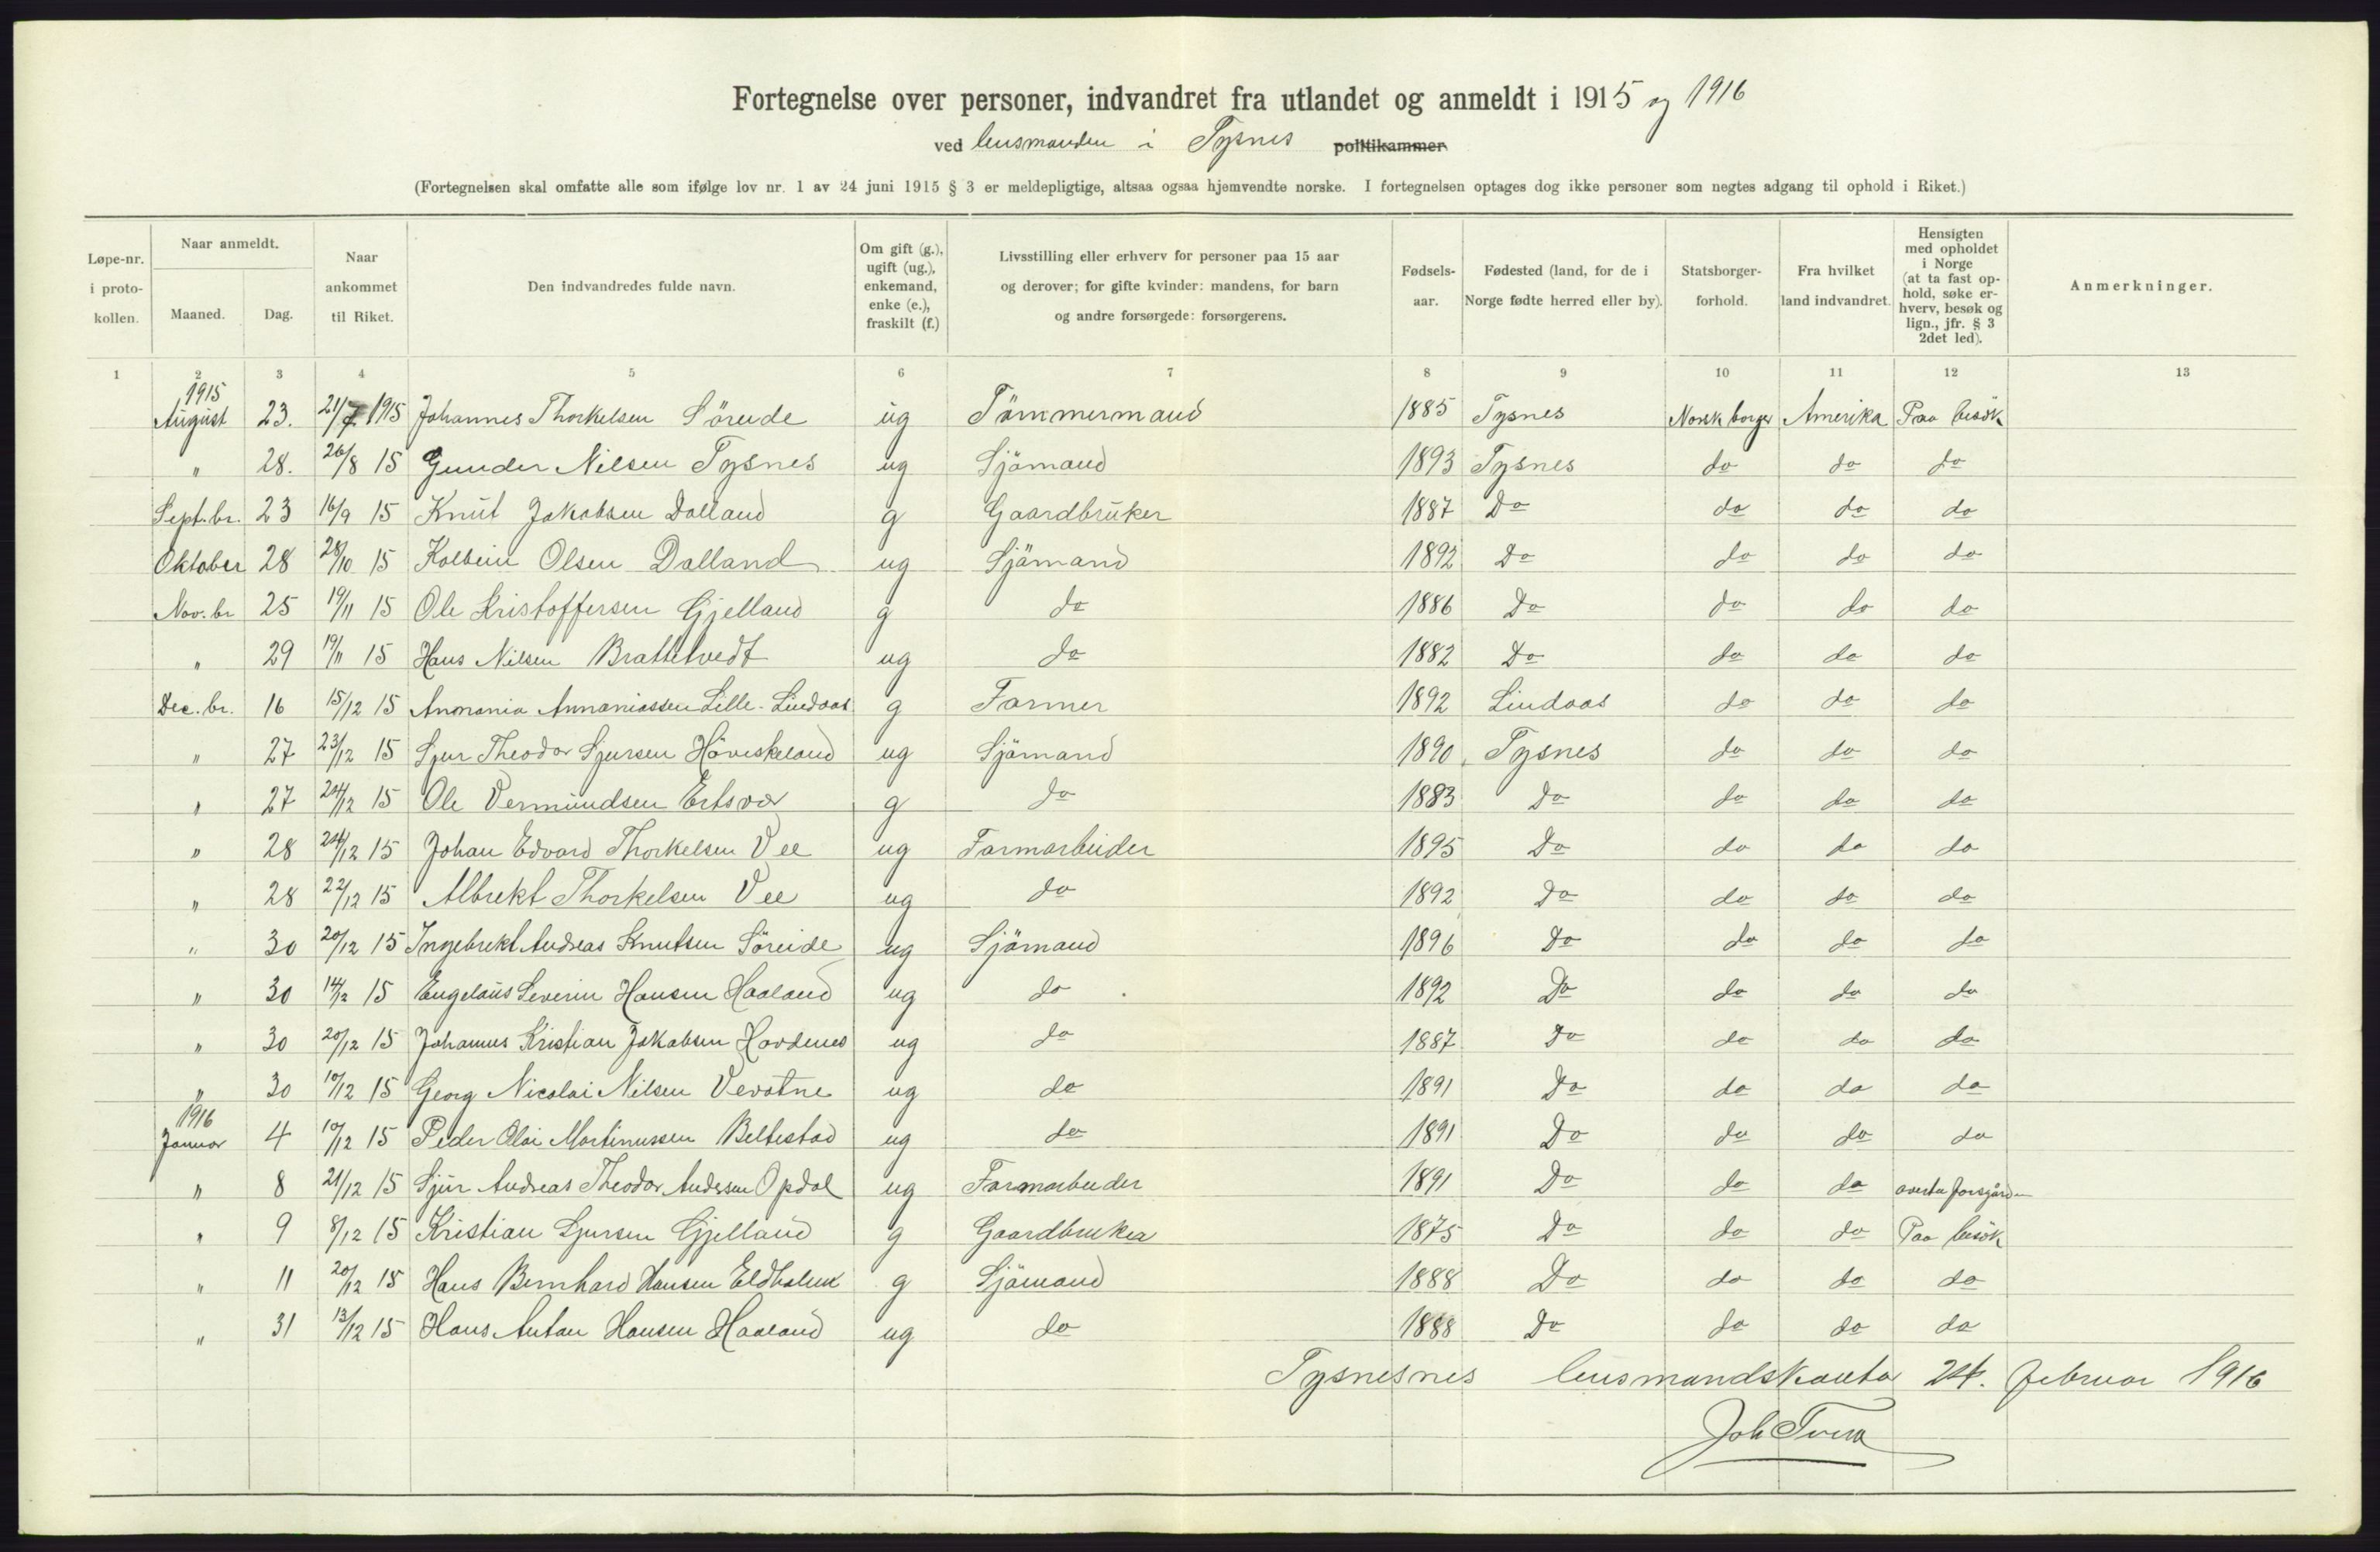 Fortegnelse over personer, indvandret fra utlandet og anmeldt i 1915 og 1916
ved lensmanden i Tysnes politikammer
(Fortegnelsen skal omfatte alle som ifølge lov nr. 1 av 24 juni 1915 § 3 er meldepligtige, altsaa ogsaa hjemvendte norske. I fortegnelsen optages dog ikke personer som negtes adgang til ophold i Riket.)
Løpe-nr. i proto-kollen. Naar anmeldt. Maaned. Dag. Naar ankommet til Riket. Den indvandredes fulde navn. Om gift (g.), ugift (ug.), enkemand, enke (e.), fraskilt (f.) Livsstilling eller erhverv for personer paa 15 aar og derover; for gifte kvinder: mandens, for barn og andre forsørgede: forsørgerens. Fødsels-aar. Fødested (land, for de i Norge fødte herred eller by). Statsborger-forhold. Fra hvilket land indvandret. Hensigten med opholdet i Norge (at ta fast op-hold, søke er-hverv, besøk og lign., jfr. § 3 2det led). Anmerkninger.
1 2 3 4 5 6 7 8 9 10 11 12 13
1915
August 23. 21/7 1915 Johannes Thorkelsen Söreide ug Tömmermand 1885 Tysnes Norsk borger Amerika Paa besök
" 28. 26/8 15 Gunder Nilsen Tysnes ug Sjömand 1893 Tysnes do do do
Sept.br. 23 16/9 15 Knut Jakobsen Dalland g Gaardbruker 1887 Do do do do
Oktober 28 28/10 15 Kolbein Olsen Dalland ug Sjömand 1892 Do do do do
Nov.br 25 19/11 15 Ole Kristoffersen Gjelland g do 1886 Do do do do
" 29 19/11 15 Hans Nilsen Brattetvedt ug do 1882 Do do do do
Dec.br. 16 15/12 15 Annania Annaniassen Lille-Lindaas g Farmer 1892 Lindaas do do do
" 27 23/12 15 Sjur Theodor Sjursen Höviskeland ug Sjömand 1890 Tysnes do do do
" 27 24/12 15 Ole Vermundsen Ertsvær g do 1883 Do do do do
" 28 24/12 15 Johan Edvard Thorkelsen Vee ug Farmarbeider 1895 Do do do do
" 28 22/12 15 Albrekt Thorkelsen Vee ug do 1892 Do do do do
" 30 20/12 15 Ingebrekt Andreas Knutsen Söreide ug Sjömand 1896 Do do do do
" 30 14/12 15 Engelaus Severin Hansen Haaland ug do 1892 Do do do do
" 30 20/12 15 Johannes Kristian Jakobsen Hovdenes ug do 1887 Do do do do
" 30 10/12 15 Georg Nicolai Nilsen Vevatne ug do 1891 Do do do do
1916
Januar 4 10/12 15 Peder Olai Martinussen Beltestad ug do 1891 Do do do do
" 8 21/12 15 Sjur Andreas Theodor Andersen Opdal ug Farmarbeider 1891 Do do do overta farsgården
" 9 8/12 15 Kristian Sjursen Gjelland g Gaardbruker 1875 Do do do Paa besök
" 11 20/12 15 Hans Bernhard Hansen g Sjömand 1888 Do do do do
" 31 13/12 15 Hans Anton Hansen Haaland ug do 1888 Do do do do
Tysnesnes lensmandskontor 24. februar 1916
Joh Tveit